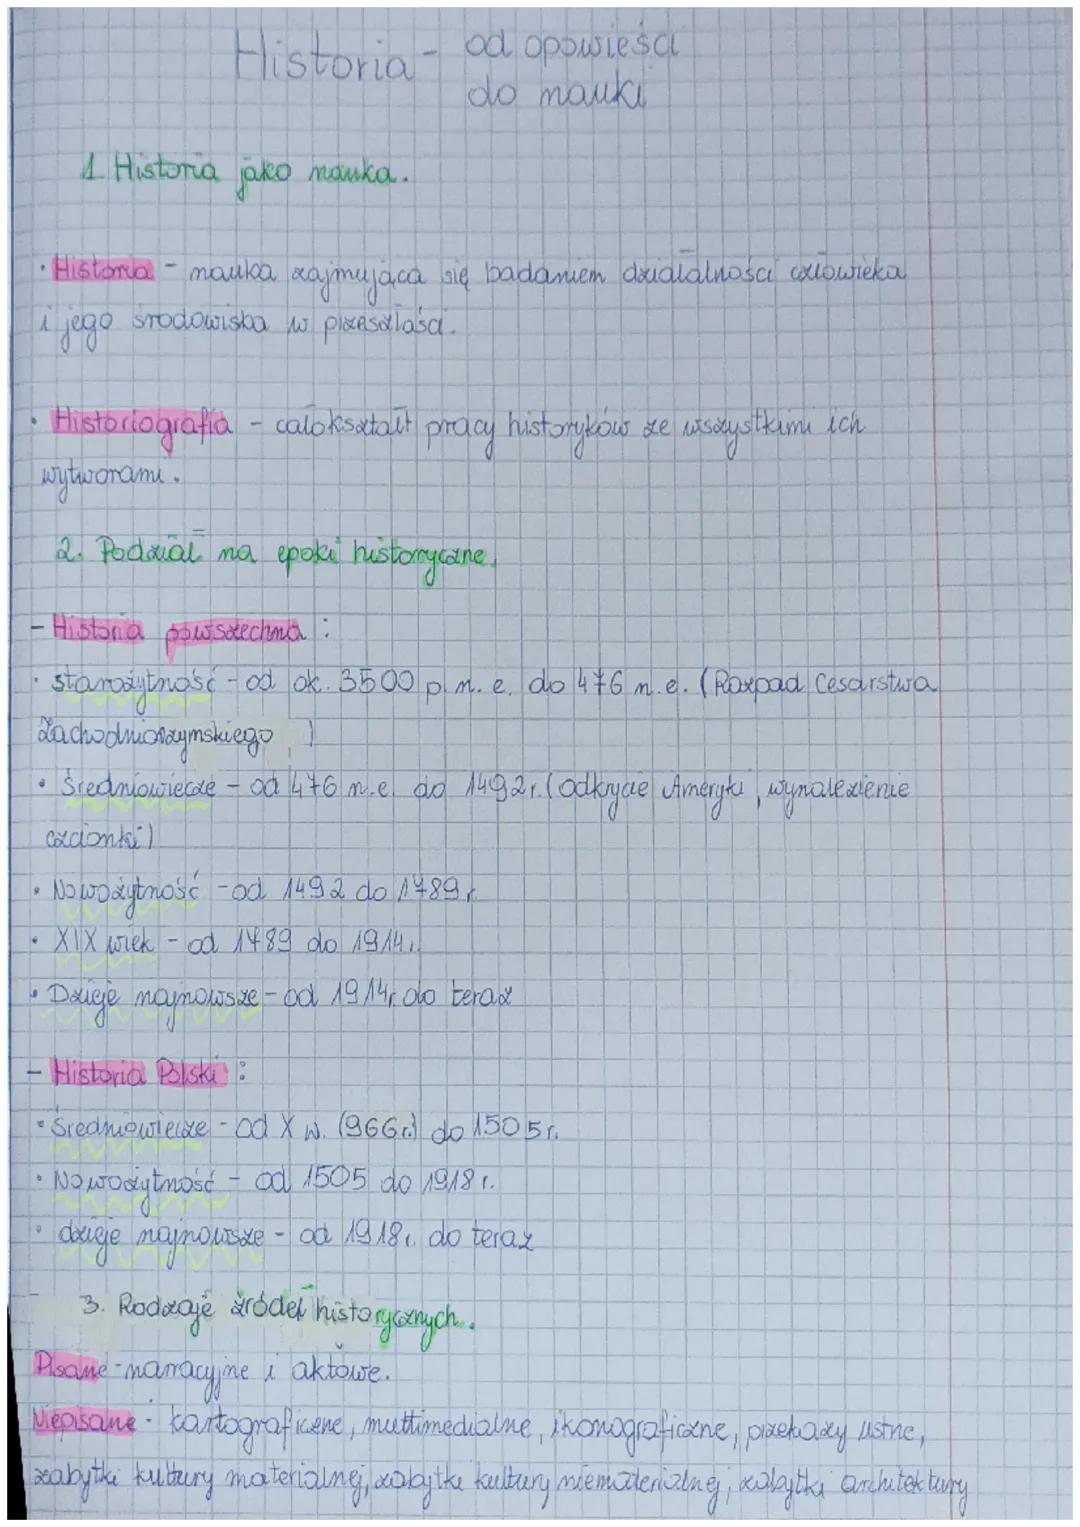 Historia - od opowieści
do nauki
1. Historia jako nauka.
• Historia - nauka zajmująca się badaniem działalności człowieka
i jego środowiska w przeszłości.
• Historiografia - całokształt pracy historyków ze wszystkimi ich
wytworami.
2. Podział na epoki historyczne.
- Historia powszechna :
• starożytność - od ok. 3500 p.n.e. do 476 n.e. (Rozpad Cesarstwa
Zachodniorzymskiego )
• Średniowiecze - od 476 n.e. do 1492r. (odkrycie Ameryki, wynalezienie
czcionki)
• Nowożytność - od 1492 do 1789r.
• XIX wiek - od 1789 do 1914r.
• Dzieje najnowsze - od 1914r. do teraz
- Historia Polski :
• Średniowiecze - od X w. (966r.) do 1505r.
• Nowożytność - od 1505 do 1918r.
• dzieje najnowsze - od 1918r. do teraz
3. Rodzaje źródeł historycznych.
Pisane - narracyjne i aktowe.
Niepisane - kartograficzne, multimedialne, ikonograficzne, przekazy ustne,
zabytki kultury materialnej, zabytki kultury niematerialnej, zabytki architektury